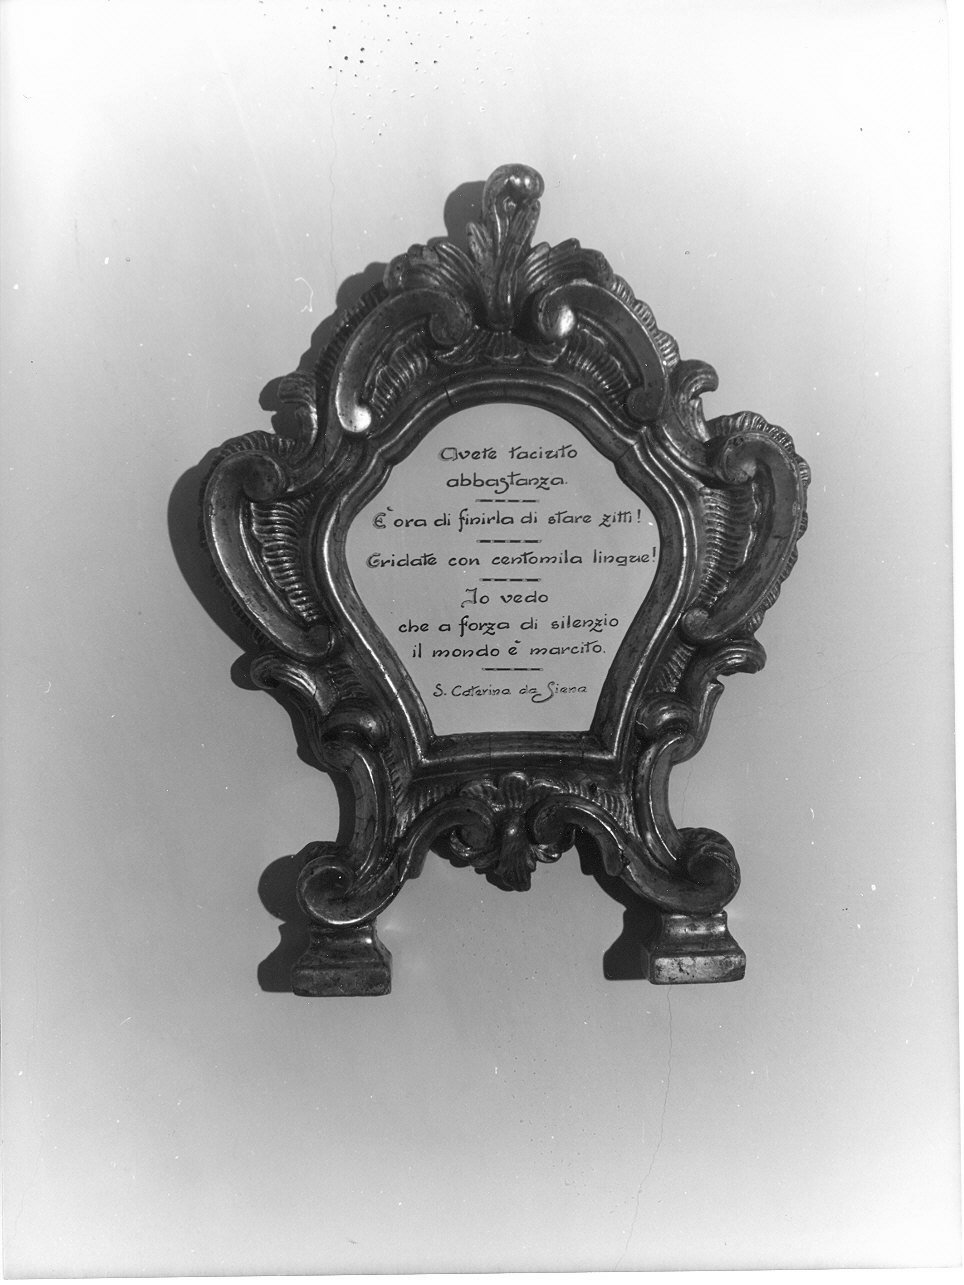 Avete taciuto
abbastanza.
E' ora di finirla di stare zitti!
Gridate con centomila lingue!
Io vedo
che a forza di silenzio
il mondo è marcito.
S. Caterina da Siena